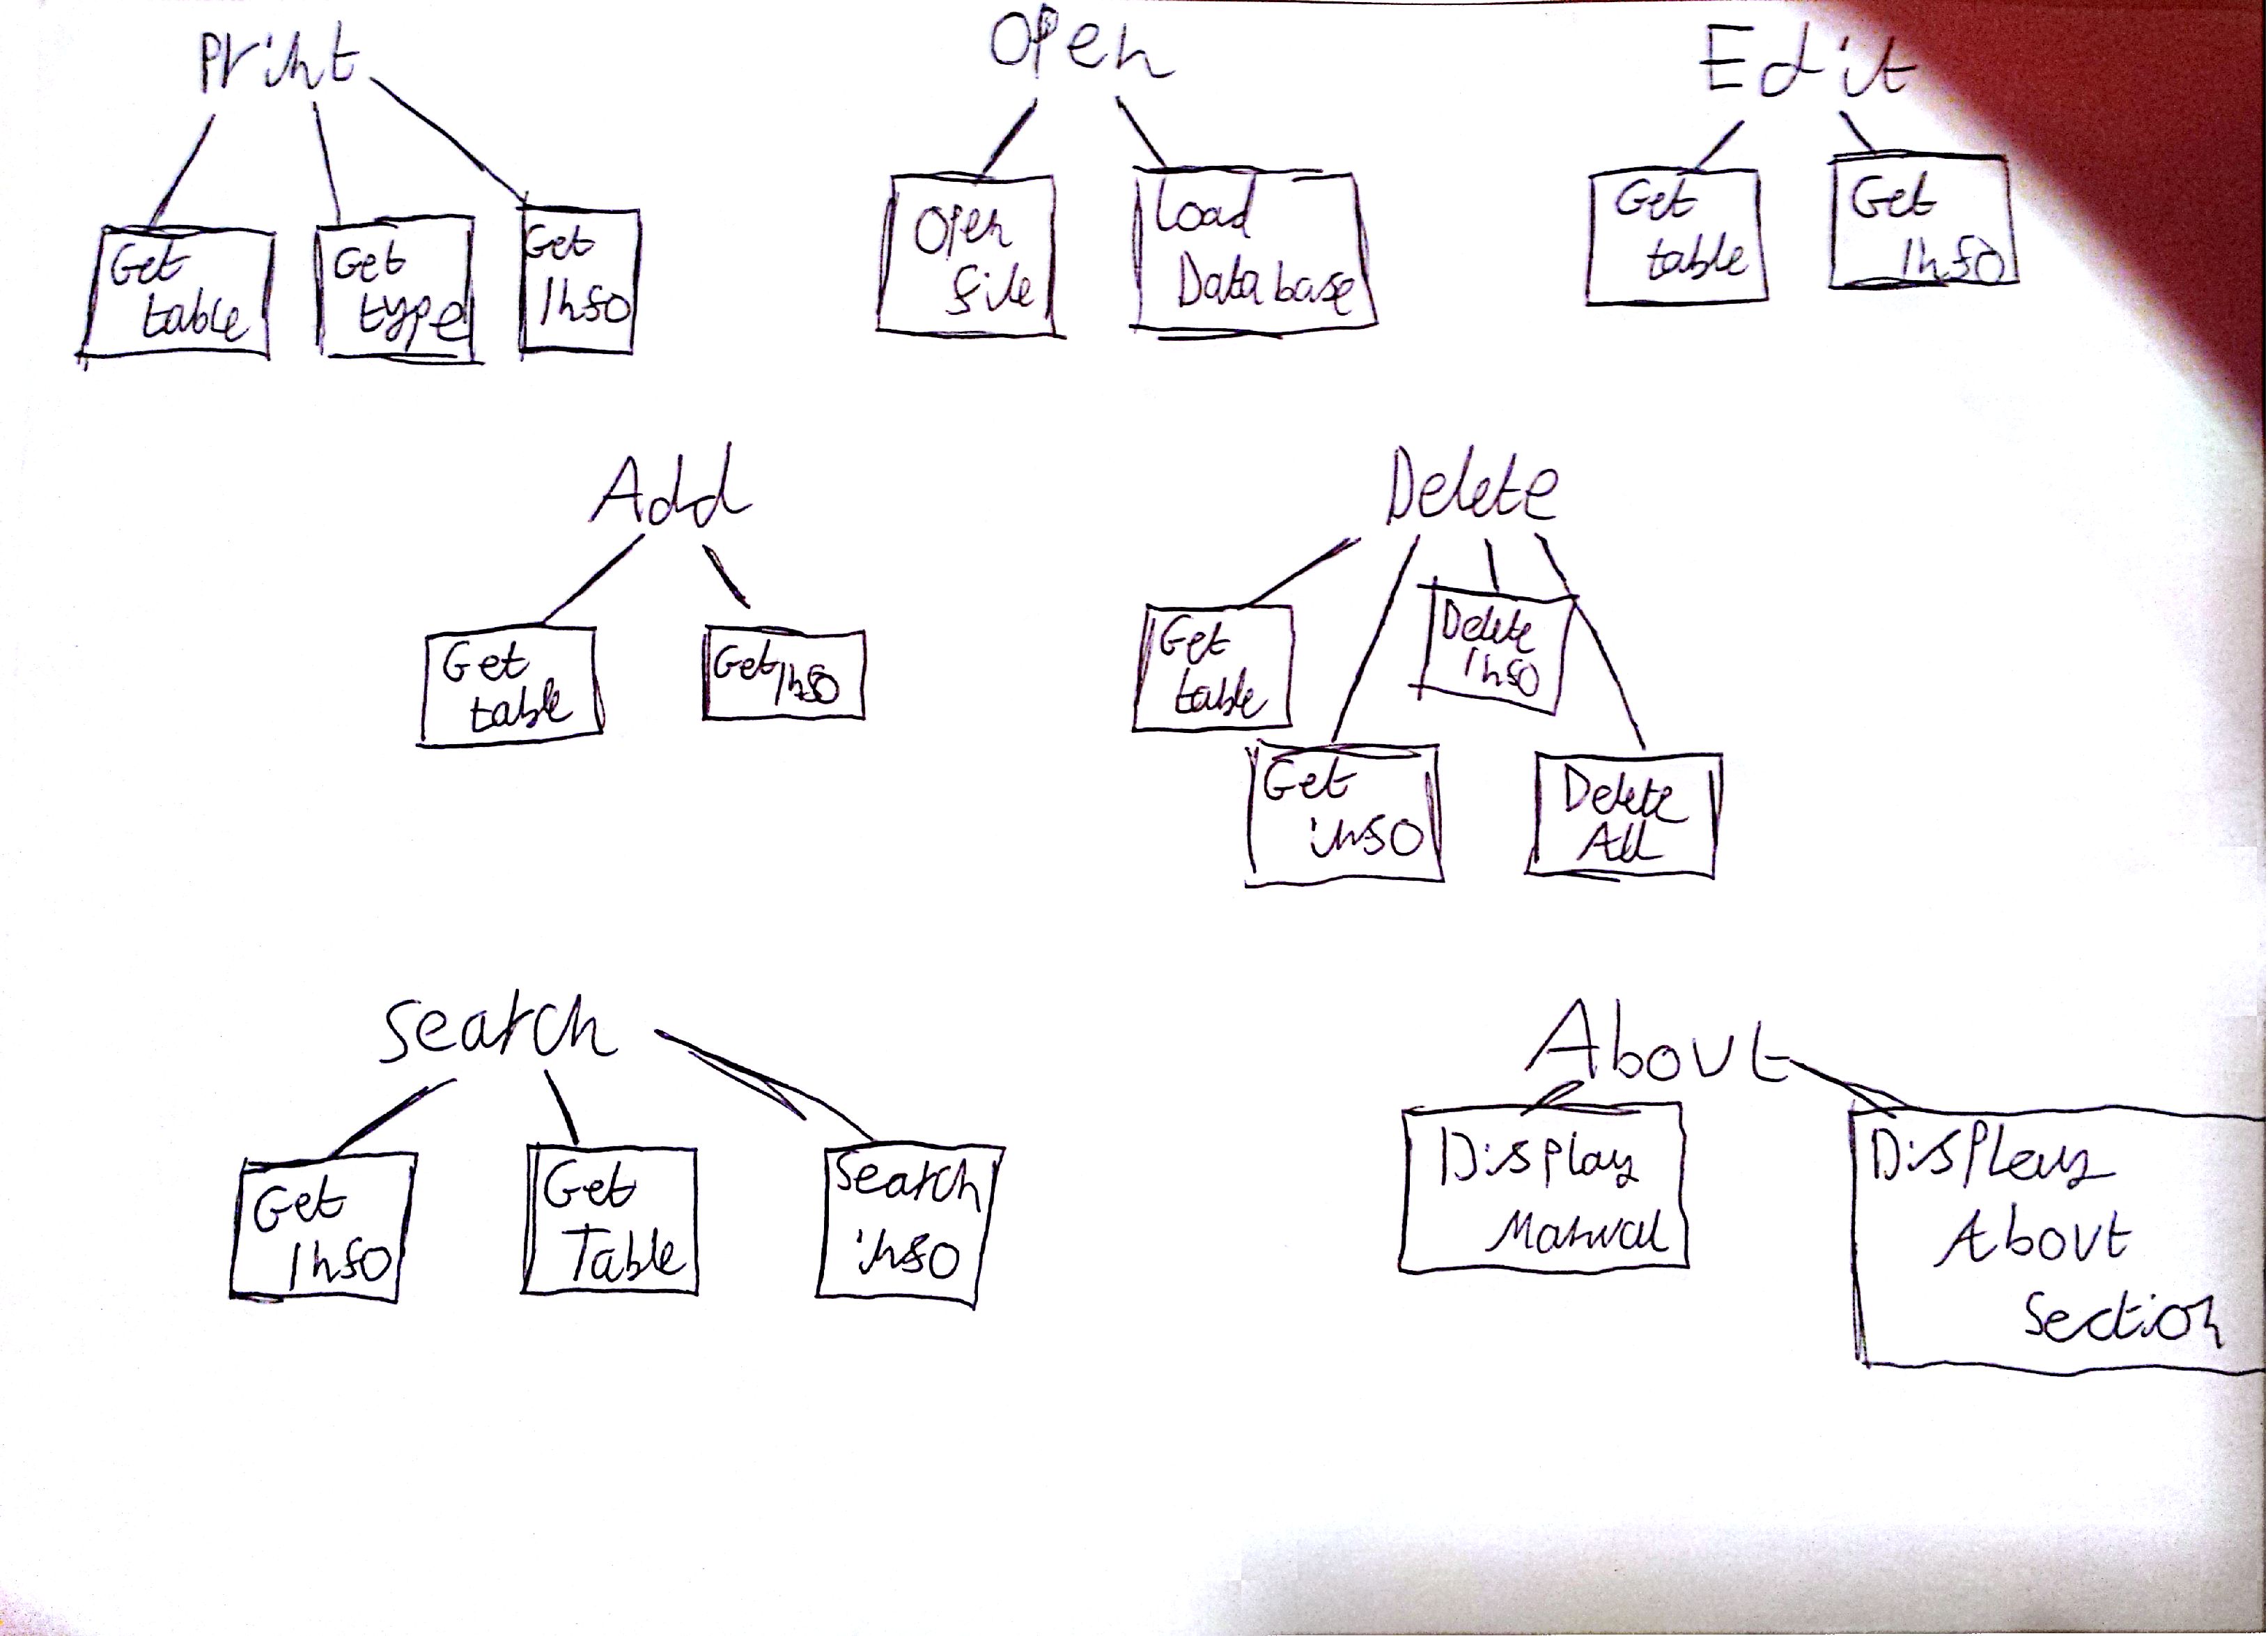 Print
Get
table
Get
type
Get
Info
Open
Open
file
Load
Database
Edit
Get
table
Get
Info
Add
Get
table
Get Info
Delete
Get
table
Get
info
Delete
Info
Delete
All
Search
Get
Info
Get
Table
Search
info
About
Display
Manual
Display
About
Section